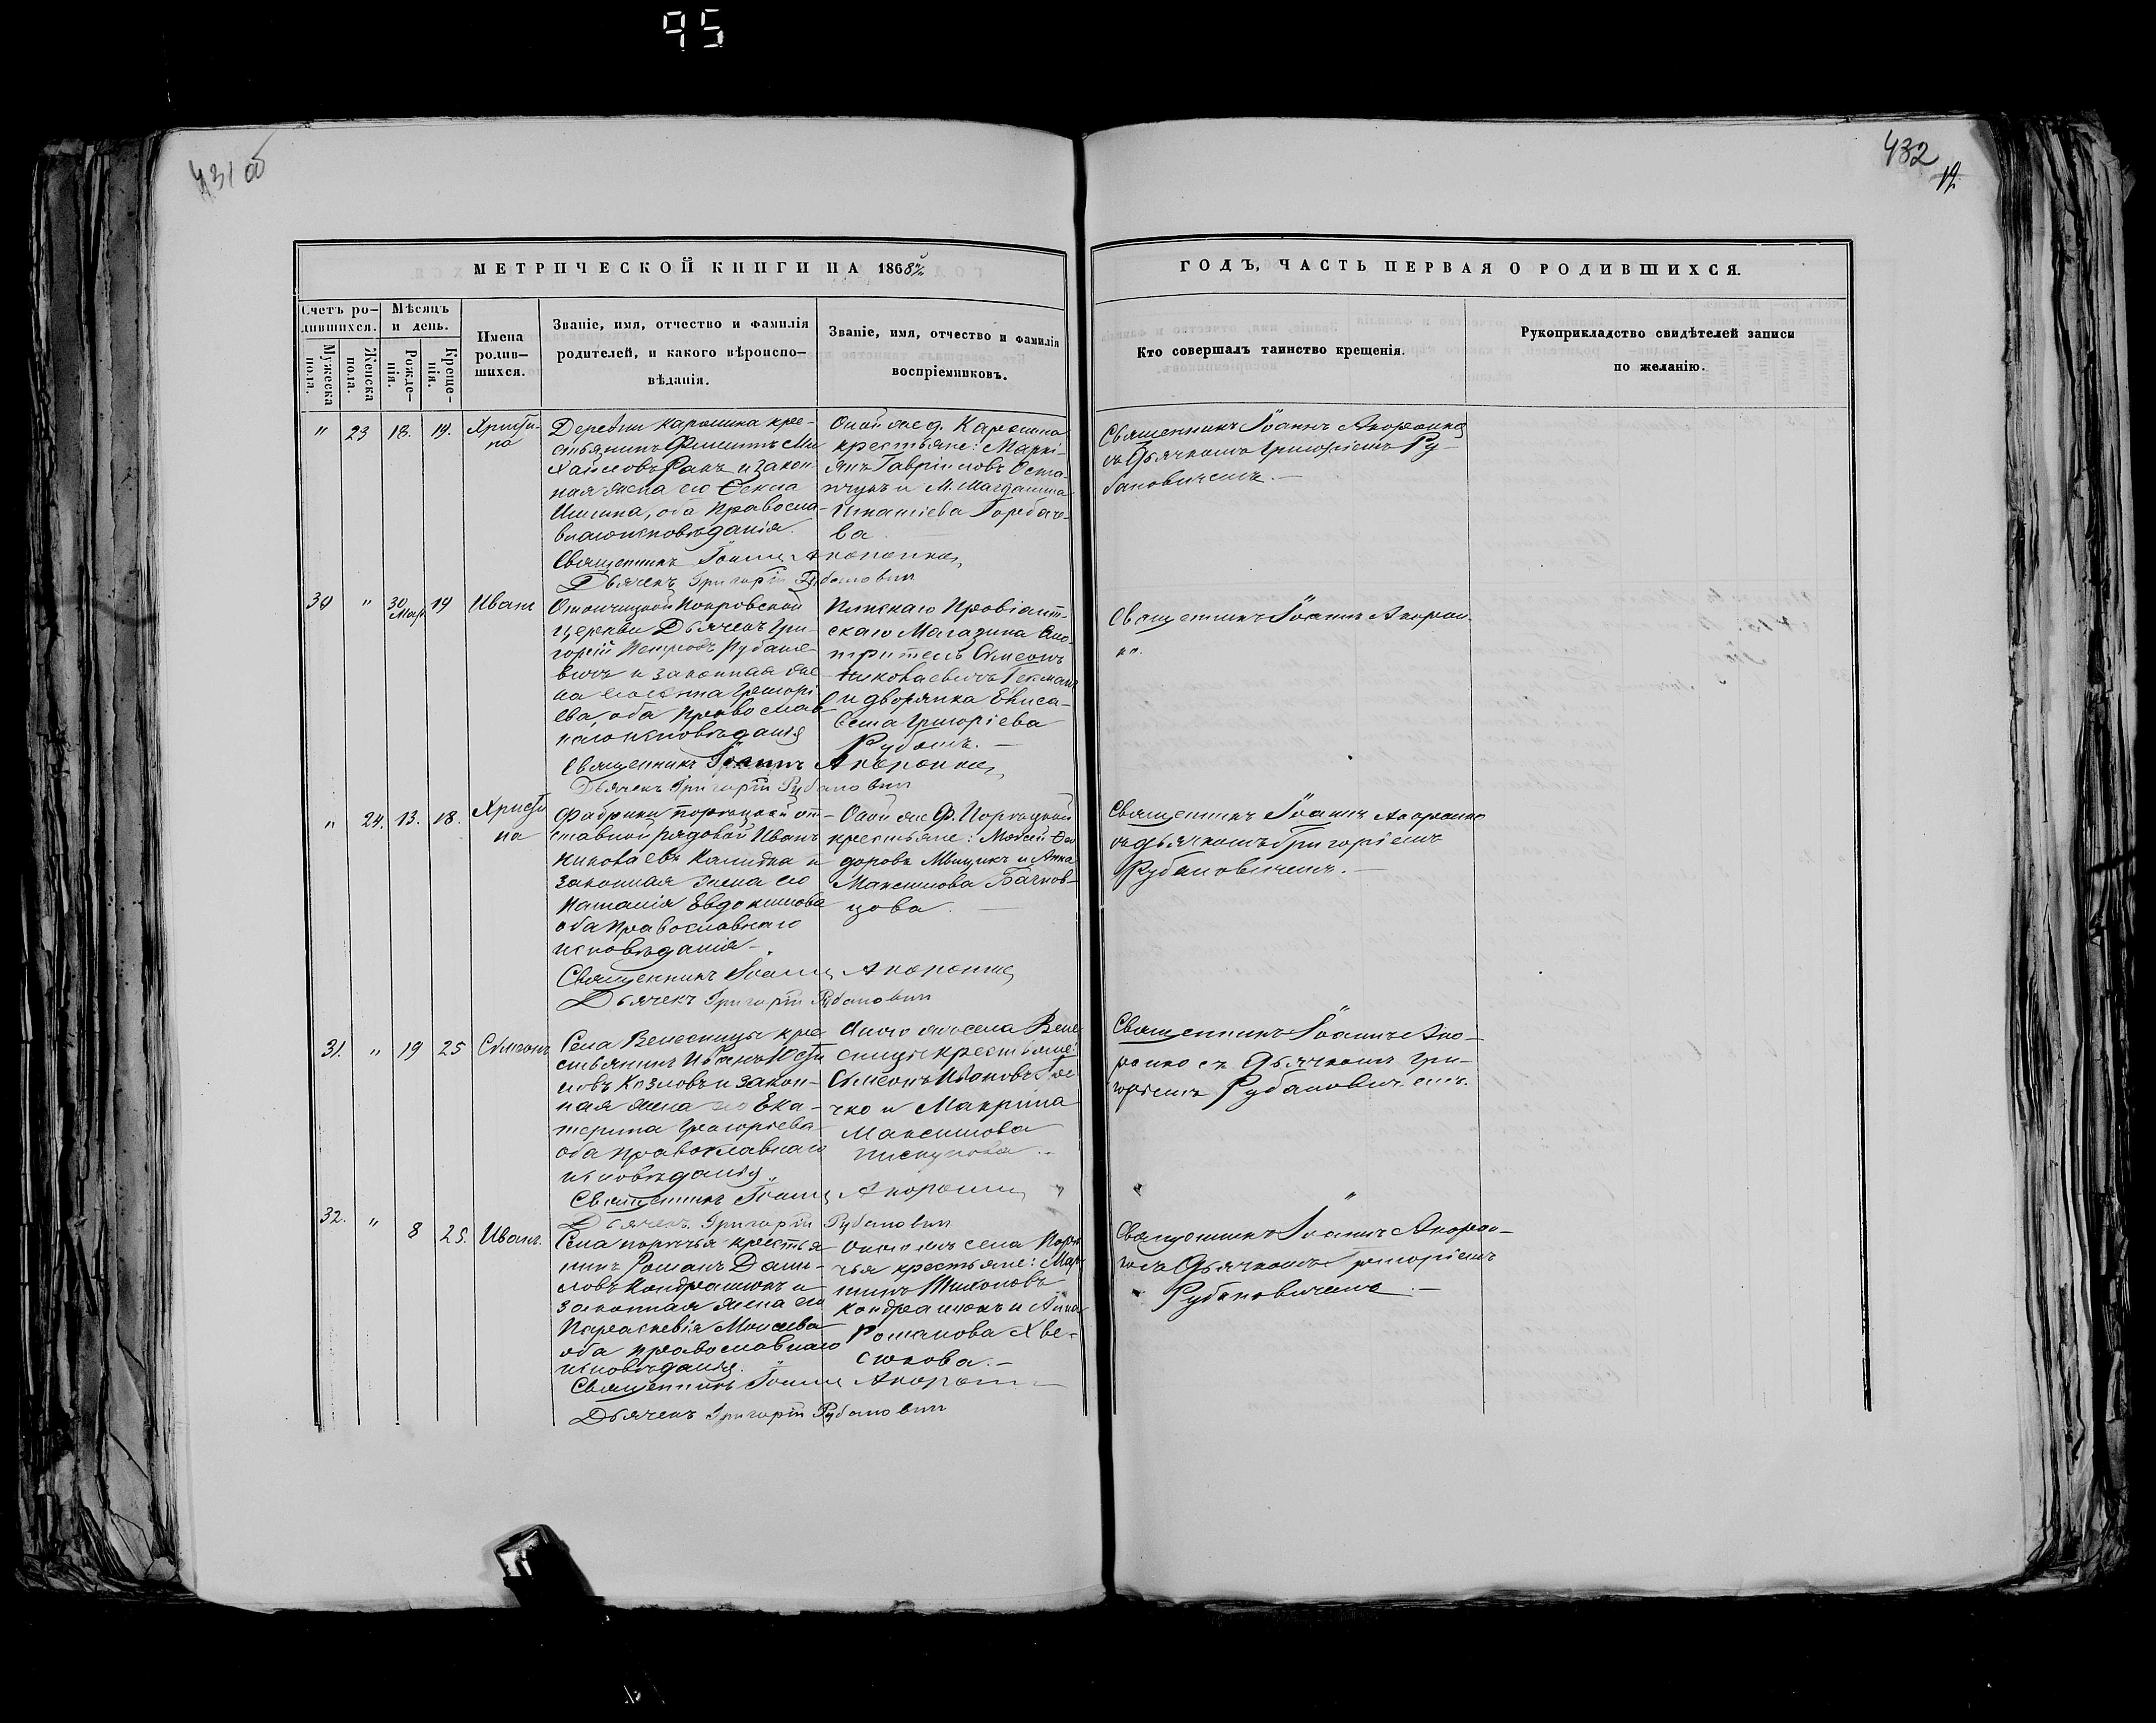 95
431 об
432
12
МЕТРИЧЕСКОЙ КНИГИ НА 1868
ГОДЪ, ЧАСТЬ ПЕРВАЯ О РОДИВШИХСЯ.
Счетъ ро-
дившихся.
Мужеска
пола.
Женска
пола.
Мѣсяцъ
и день.
Рожде-
нія.
Креще-
нія.
Имена
родив-
шихся.
Званіе, имя, отчество и фамилія
родителей, и какого вѣроиспо-
вѣданія.
Званіе, имя, отчество и фамилія
воспріемниковъ.
Кто совершалъ таинство крещенія.
Рукоприкладство свидѣтелей записи
по желанію.
" 23 18. 19.
Христи-
на
Деревни кре-
стьянинъ Ми
хайловъ и закон
ная жена его Ѳекла
оба правосла-
внаго исповѣданія.
Священникъ Іоаннъ
Дьячекъ Григорій Рубановичъ
Оной же д.
крестьяне: Маркі-
янъ Гавріиловъ Оста
пчукъ и Магдалина
Игнатіева Горбаче-
ва
Священникъ Іоаннъ
съ Дьячкомъ Григоріемъ Ру-
бановичемъ.
30 " 30 Мар. 19
Иванъ
Покровской
церкви Дьячекъ Гри-
горій Петровъ Рубано-
вичъ и законная же
на его Анна Григорі
ева, оба православ
наго исповѣданія
Священникъ Іоаннъ
Дьячекъ Григорій Рубановичъ
Пинскаго Провіант-
скаго Магазина Смо-
тритель Симеонъ
Николаевичъ
и дворянка Елиса-
Григоріева
Священникъ Іоаннъ
" 24. 13. 18.
Христи
на
Фабрики Порѣцкой от-
ставной рядовой Иванъ
Николаевъ Калитка и
законная жена его
Наталія Евдокимова
оба православнаго
исповѣданія
Священникъ Іоаннъ
Дьячекъ Григорій Рубановичъ
Оной же Ф. Порѣцкой
крестьяне: Мойсей Ѳео
доровъ и Анна
Максимова
цова.
Священникъ Іоаннъ
съ дьячкомъ Григоріемъ
Рубановичемъ.
31. " 19 25
Симеонъ
Села Велесницы кре
стьянинъ Иванъ Юсти
новъ Козловъ и закон-
ная жена его Ека-
терина Григоріева
оба православнаго
исповѣданія
Священникъ Іоаннъ
Дьячекъ Григорій Рубановичъ
Оного же села Веле
сницы крестьяне:
Симеонъ Ивановъ
чко и Макрина
Максимова
Пискунова
Священникъ Іоаннъ
съ Дьячкомъ Гри-
горіемъ Рубановичемъ.
32. " 8 25.
Иванъ.
Села Порѣчья крестья
нинъ Романъ Дани-
ловъ Кондратюкъ и
законная жена его
Параскевія Моисеева
оба православнаго
исповѣданія.
Священникъ Іоаннъ
Дьячекъ Григорій Рубановичъ
Оного же села Порѣ
чья крестьяне: Мар
тинъ Тихоновъ
Кондратюкъ и Анна
Романова Хве-
сюкова.
Священникъ Іоаннъ
съ Дьячкомъ Григоріемъ
Рубановичемъ